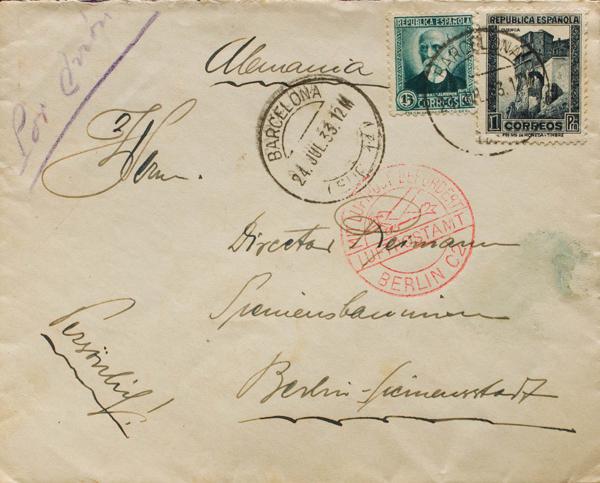 Por avión
Alemania
REPUBLICA ESPAÑOLA
15 CORREOS
REPUBLICA ESPAÑOLA
CUENCA
1 CORREOS
BARCELONA
24.JUL.33.12M
BARCELONA
Herrn.
MIT LUFTPOST BEFÖRDERT
LUFTPOSTAMT
BERLIN C2
Director
Persönlich!
Berlin-Siemensstadt